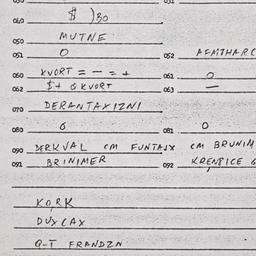 040 $ )80
050 MUTNE
051 O 052 AFMTHARC
060 KVORT = - = + 061 O
062 $+ & KVORT 063 —
070 DERANTAXIZNI
080 6 081 O
090 DERKVAL CM FUNTAJX CM BRUNIM
091 BRINIMER 092 KRENTICE
KORK
DUXCAX
Q-T FRANDZN